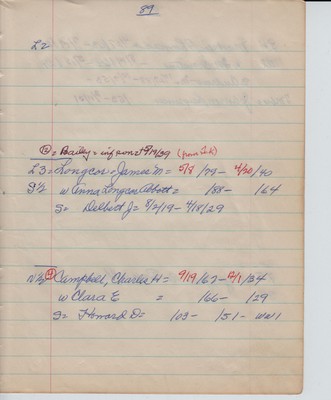 89
L2
② = Bailey = infront 9/19/39 (from Link)
L3 = Longcor = James M = 5/8 /79 - 4/30/40
S½ w Anna Longcor Abbott = /88 - /64
S = Delbert J = 8/2/19 - 4/18/29
N½ ① Campbell, Charles H = 9/19/67 - 12/1/34
w Clara E = /66 - /29
S = Howard D = /03 - /51 - WW1